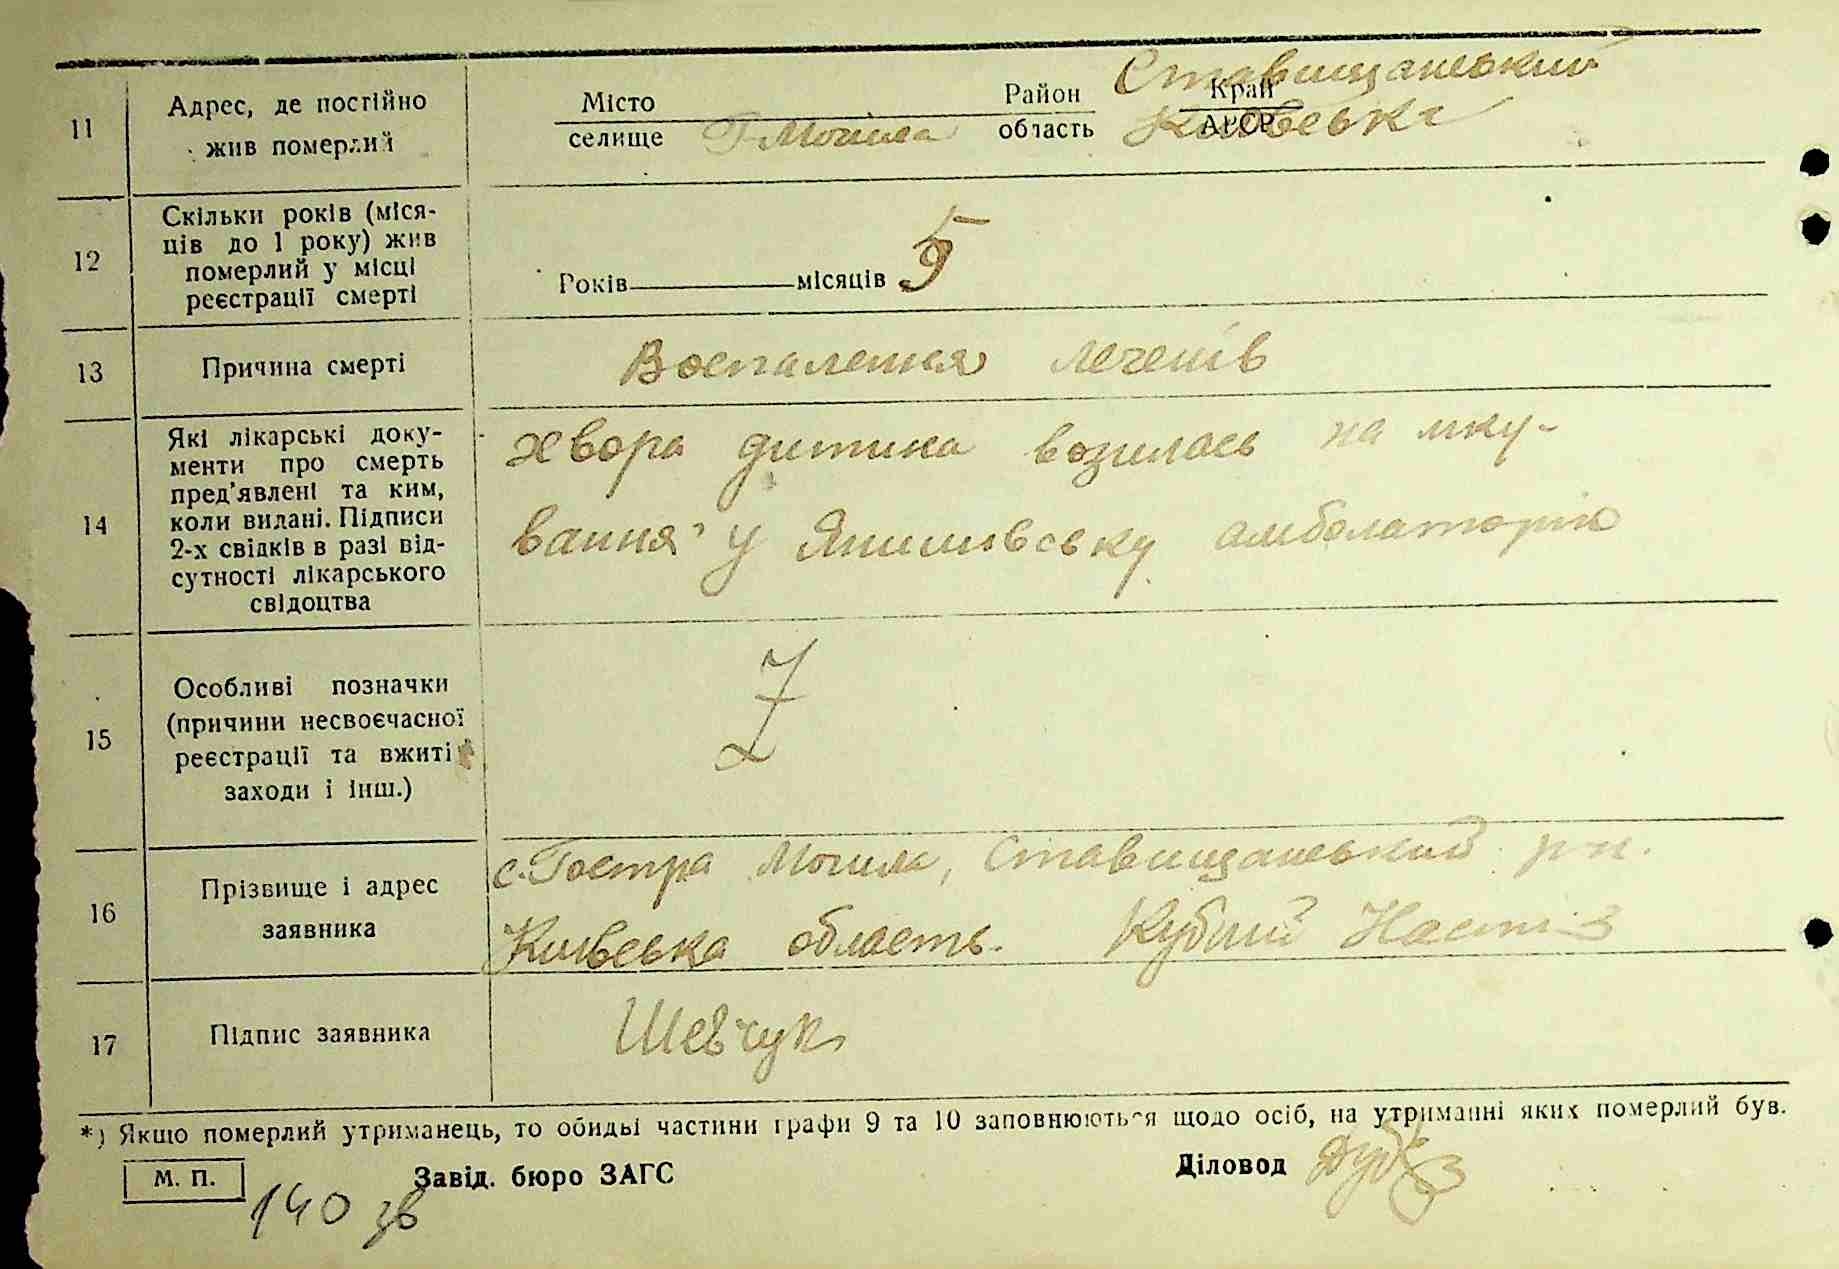 11 Адрес, де постійно жив померлий Місто селище Г-Могила Район область Ставищанський Край АРСР Київська
12 Скільки років (міся-
ців до 1 року) жив
померлий у місці
реєстрації смерті
Років місяців 5
13 Причина смерті Воспалення легенів
14 Які лікарські доку-
менти про смерть
пред'явлені та ким,
коли видані. Підписи
2-х свідків в разі від-
сутності лікарського
свідоцтва
хвора дитина возилась на ліку-
вання у амболаторію
15 Особливі позначки
(причини несвоєчасної
реєстрації та вжиті
заходи і інш.)
16 Прізвище і адрес
заявника
с. Гостра Могила, Ставищанський р-н.
Київська область. Кубий
17 Підпис заявника Шевчук
*) Якщо померлий утриманець, то обидві частини графи 9 та 10 заповнюються щодо осіб, на утриманні яких померлий був.
М. П. Завід. бюро ЗАГС Діловод
140 зв